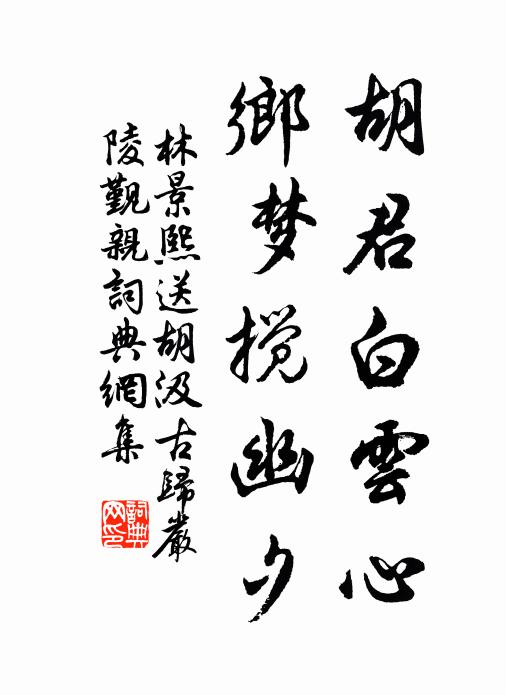 胡君白雲心
鄉梦搅幽夕
林景熙送胡汲古歸嚴
陵覲親詞典網集
詞典网印